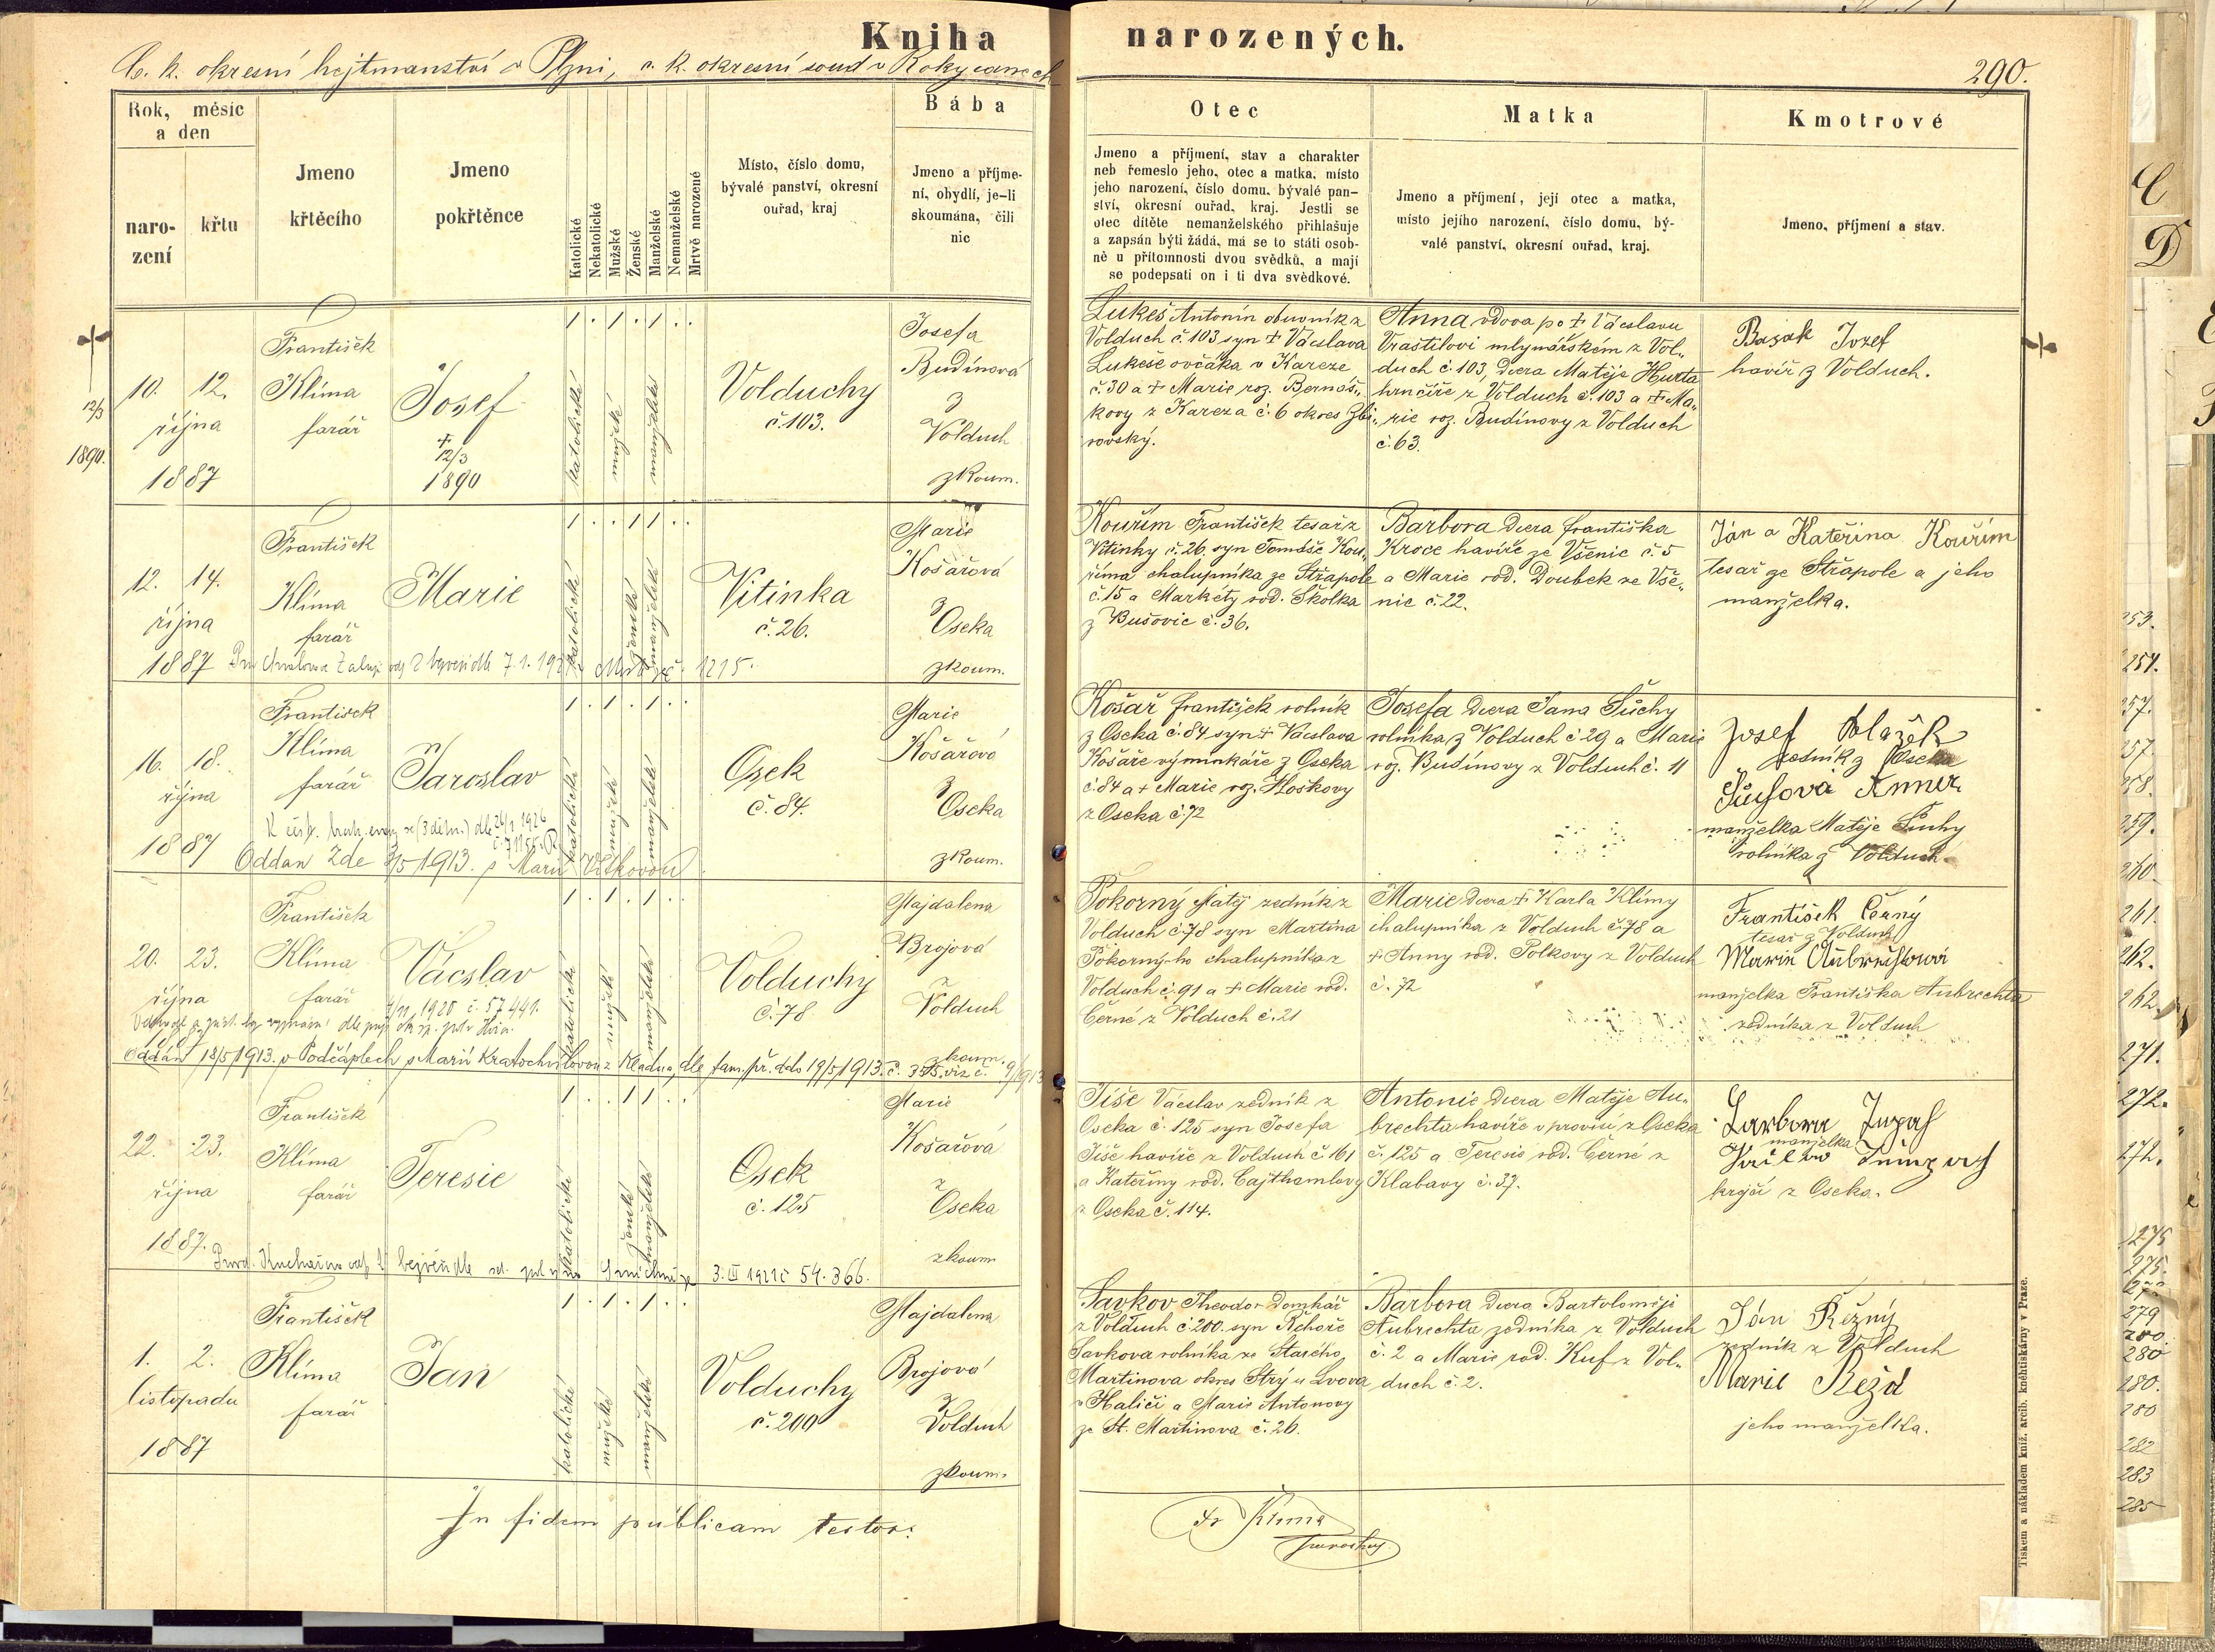 Kniha narozených.
C. k. okresní hejtmanství v Plzni, c. k. okresní soud v Rokycanech
290.
Rok, měsíc
a den
naro-
zení
křtu
Jmeno
křtěcího
Jmeno
pokřtěnce
Katolické
Nekatolické
Mužské
Ženské
Manželské
Nemanželské
Mrtvě narozené
Místo, číslo domu,
bývalé panství, okresní
ouřad, kraj
Bába
Jmeno a příjme-
ní, obydlí, je-li
skoumána, čili
nic
Otec
Jmeno a příjmení, stav a charakter
neb řemeslo jeho, otec a matka, místo
jeho narození, číslo domu, bývalé pan-
ství, okresní ouřad, kraj. Jestli se
otec dítěte nemanželského přihlašuje
a zapsán býti žádá, má se to státi osob-
ně u přítomnosti dvou svědků, a mají
se podepsati on i ti dva svědkové.
Matka
Jmeno a příjmení, její otec a matka,
místo jejího narození, číslo domu, bý-
valé panství, okresní ouřad, kraj.
Kmotrové
Jmeno, příjmení a stav.
12/3
1890.
10. 12.
října
1887
František
Klíma
farář
Josef
+
12/3
1890
1 . 1 . 1 . .
katolické
mužské
manželské
Volduchy
č. 103.
Josefa
Budínová
z
Volduch
zkoum.
Lukeš Antonín obuvník z
Volduch č. 103 syn + Václava
Lukeše ovčáka v Kareze
č. 30 a + Marie roz. Bernáš„
kovy z Kareza č. 6 okres Zbi„
rovský.
Anna vdova po + Václavu
Vraštilovi mlynářském z Vol„
duch č. 103, dcera Matěje Hurta
hrnčíře z Volduch č. 103 a + Ma„
rie roz. Budínovy z Volduch
č. 63.
Basák Josef
havíř z Volduch.
12. 14.
října
1887
František
Klíma
farář
Marie
1 . . 1 1 . .
katolické
ženské
manželské
Vitinka
č. 26.
Marie
Košařová
z
Oseka
zkoum.
7. 1. 1215.
Kouřim František tesař z
Vitinky č. 26. syn Tomáše Kou„
říma chalupníka ze Střapole
č. 15 a Markéty rod. Školka
z Bušovic č. 36.
Barbora dcera františka
Kroce havíře ze Všenic č. 5
a Marie rod. Doubek ze Vše„
nic č. 22.
Ján a Kateřina Kouřim
tesař ze Střapole a jeho
manželka.
16. 18.
října
1887
František
Klíma
farář
Jaroslav
1 . 1 . 1 . .
katolické
mužské
manželské
Osek
č. 84.
Marie
Košařová
z
Oseka
zkoum.
Oddán zde 1913. s Marií Vlkovou
Košař františek rolník
z Oseka č. 84 syn + Václava
Košaře výminkáře z Oseka
č. 84 a + Marie roz. Hoškovy
z Oseka č. 72
Josefa dcera Jana Šuchy
rolníka z Volduch č. 29 a Marie
roz. Budínovy z Volduch č. 11
Josef
z Oseka
manželka Matěje Šuchy
rolníka z Volduch
20. 23.
října
František
Klíma
farář
Václav
1 . 1 . 1 . .
katolické
mužské
manželské
Volduchy
č. 78
Majdalena
Brojová
z
Volduch
zkoum.
1920 č. 57441.
Oddán 18/5 1913. v Podčáplech s Marií Kratochvílovou z Kladna, dle fam. př. ddo 19/5 1913.
Pokorný Matěj zedník z
Volduch č. 78 syn Martina
Pokorného chalupníka z
Volduch č. 91 a + Marie rod.
Černé z Volduch č. 21
Marie dcera + Karla Klímy
chalupníka z Volduch č. 78 a
+ Anny rod. Polkovy z Volduch
č. 72
František Černý
tesař z Volduch
Marie
manželka Františka Aubrechta
zedníka z Volduch
22. 23.
října
1887.
František
Klíma
farář
Teresie
1 . . 1 1 . .
katolické
ženské
manželské
Osek
č. 125
Marie
Košařová
z
Oseka
zkoum.
3. III 1921 č 54.366.
Jíše Václav zedník z
Oseka č. 125 syn Josefa
Jíše havíře z Volduch č. 161
a Kateřiny rod. Cajthamlovy
z Oseka č. 114.
Antonie dcera Matěje Au„
brechta havíře z Oseka
č. 125 a Teresie rod. Černé z
Klabavy č. 37.
manželka
krejčí z Oseka.
1. 2.
listopadu
1887
František
Klíma
farář
Jan
1 . 1 . 1 . .
katolické
mužské
manželské
Volduchy
č. 200
Majdalena
Brojová
z
Volduch
zkoum.
Savkov Theodor Domkář
z Volduch č. 200. syn Řehoře
Savkova rolníka ze Starého
Martinova okres Strý u Lvova
v Haliči a Marie Antonovy
ze St. Martinova č. 26.
Barbora dcera Bartoloměje
Aubrechta zedníka z Volduch
č. 2 a Marie rod. Kuf z Vol„
duch č. 2.
Ján Režný
zedník z Volduch
Marie
jeho manželka.
In fidem publicam testor:
Fr Klíma
Tiskem a nákladem kníž. arcib. kněhtiskárny v Praze.
C
D
253.
254.
257.
257
258.
259.
260
261.
262.
262.
271.
272.
272.
275
275.
279
280.
280
280.
280
282
283
285